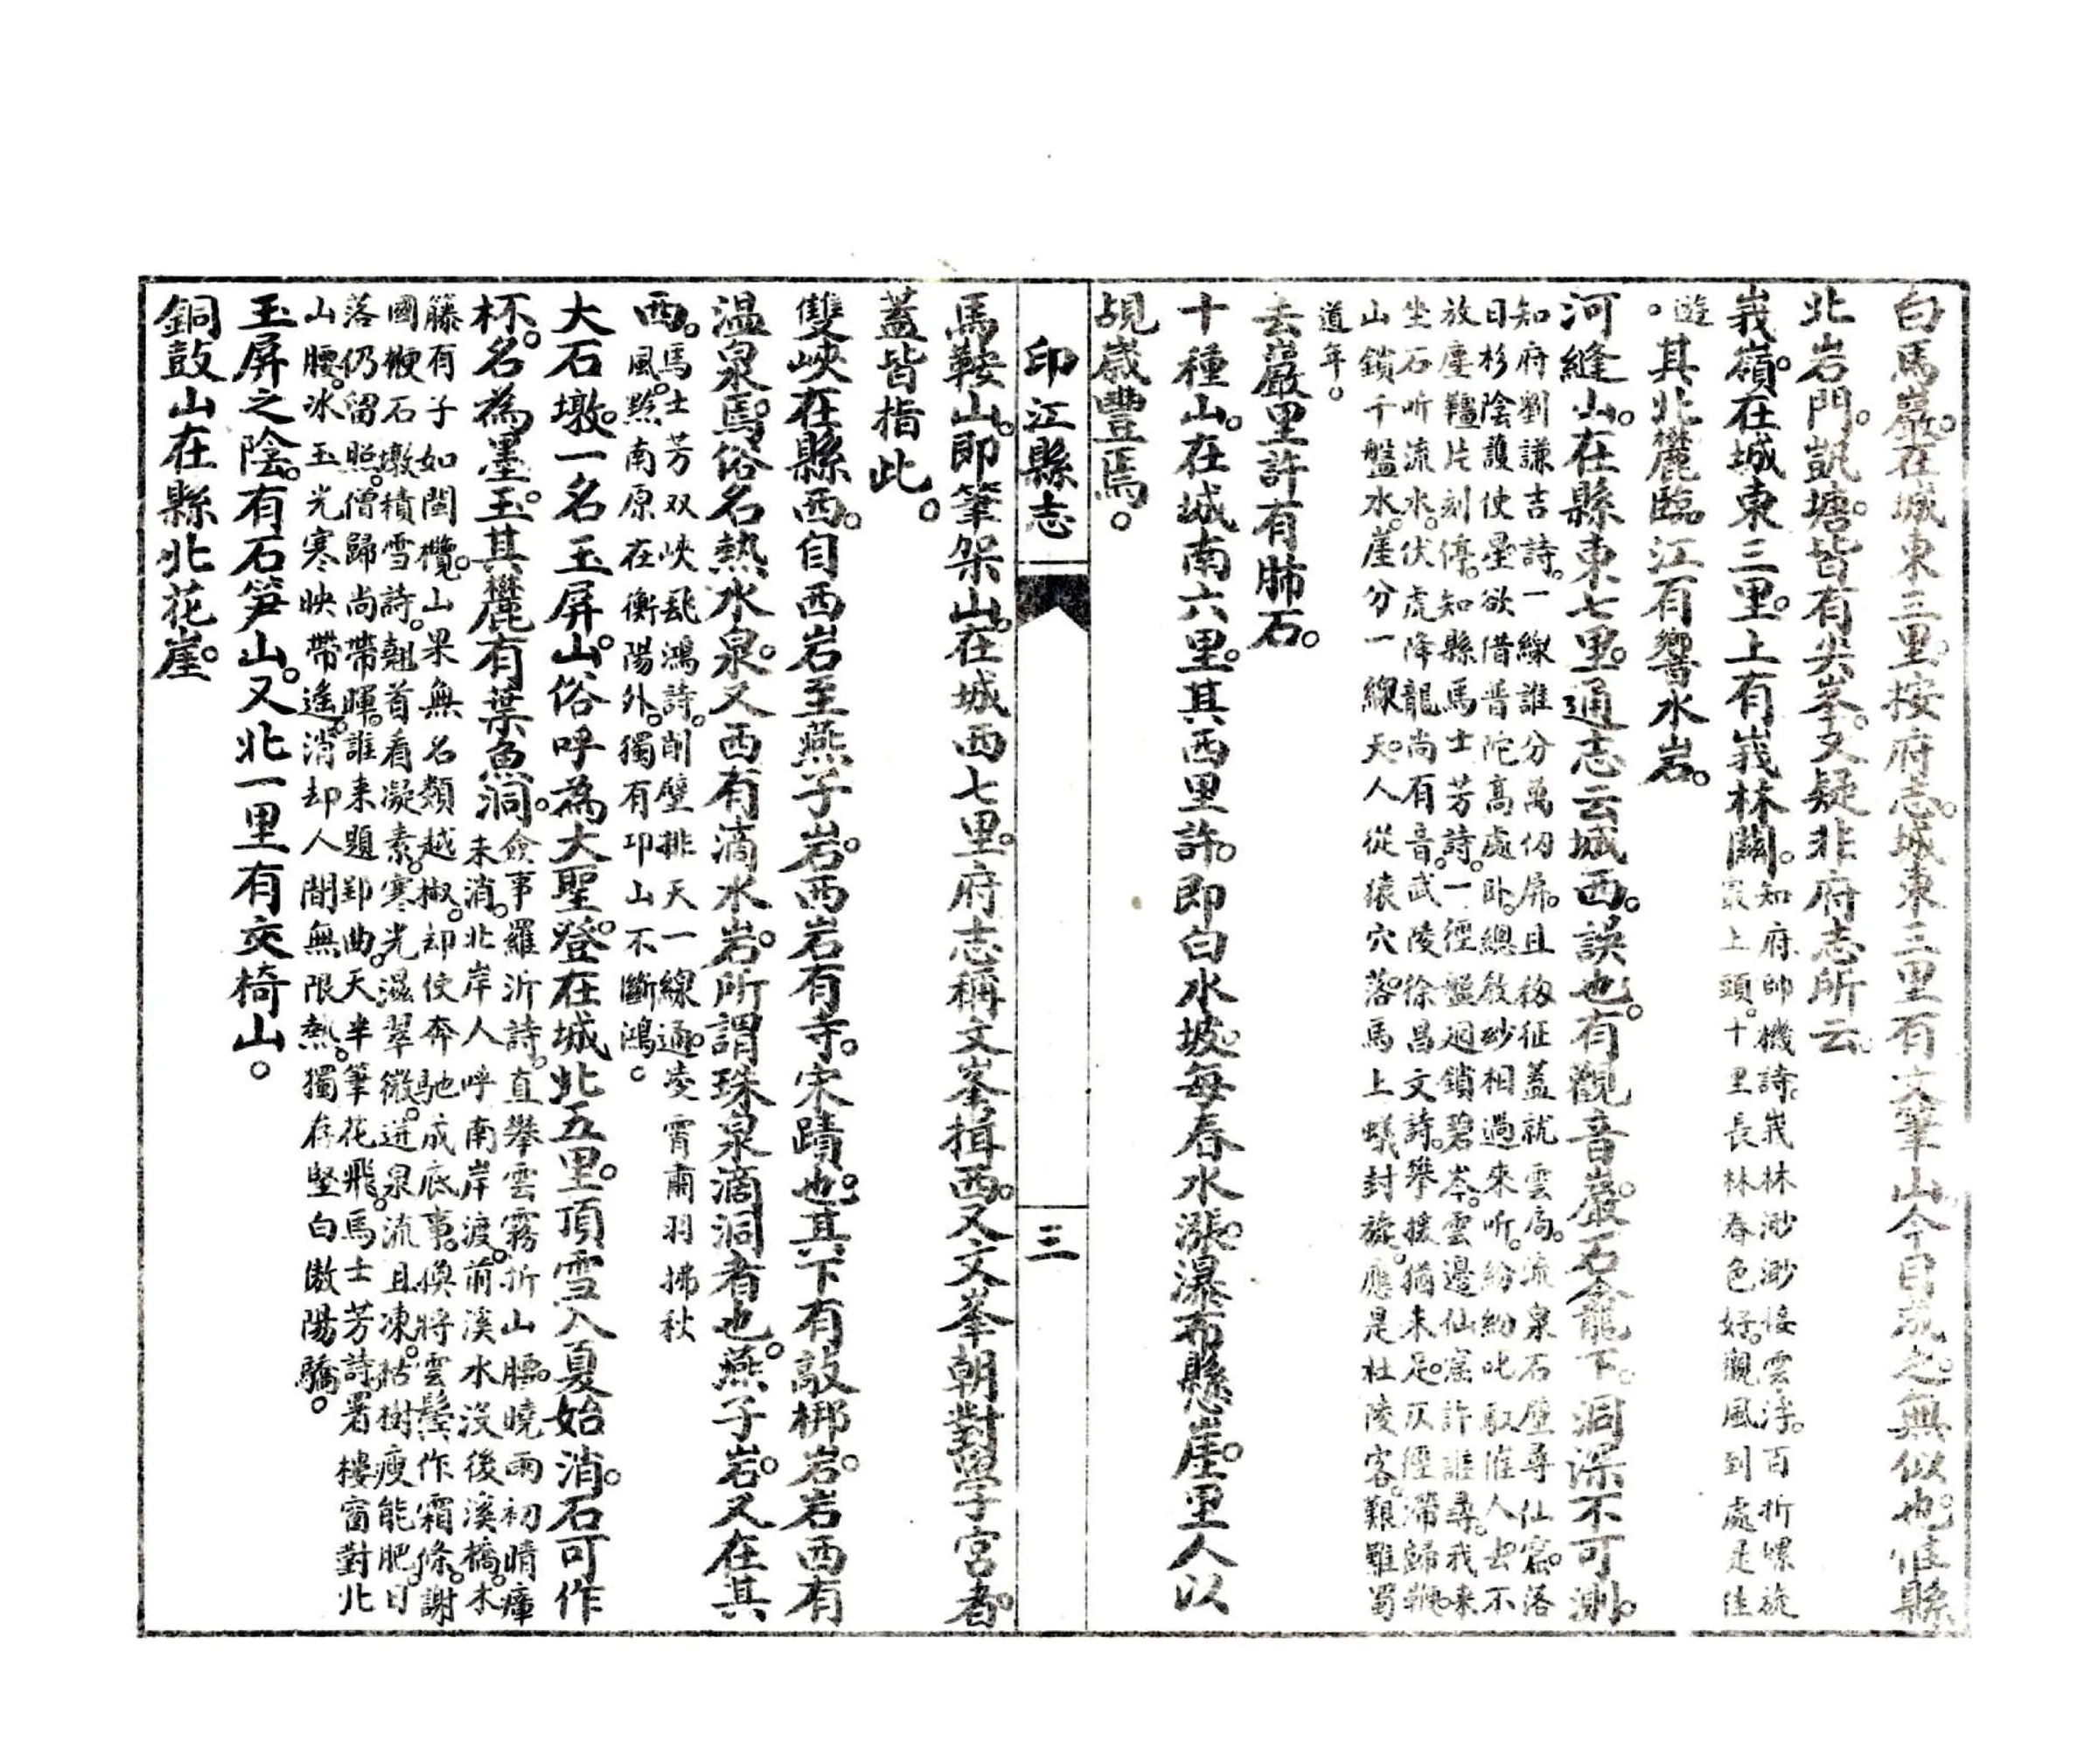 白馬巖。在城東三里。按府志。城東三里有文筆山。今目爲之。無似也。惟縣
北岩門。凱塘。皆有尖峯。又疑非府志所云。
峩嶺。在城東三里。上有峩林關。
知府帥機詩。峩林渺渺接雲浮。百折螺旋
最上頭。十里長林春色好。觀風到處是佳
遊。
其北麓臨江有響水岩。
河縫山。在縣東七里。通志云城西。誤也。有觀音巖。石龕龍下。洞深不可測。
知府劉謙吉詩。一線誰分萬仞屏。且移征蓋就雲扃。流泉石壁尋仙窟。落
日杉陰護使星。欲借普陀高處臥。總教砂相過來听。紛紛叱馭催人去。不
放塵韁片刻停。知縣馬士芳詩。一徑盤迴鎖碧岑。雲邊仙窟許誰尋。我來
坐石听流水。伏虎降龍尚有音。武陵徐昌文詩。攀援猶未足。仄徑滯歸鞭。
山鎖千盤水。崖分一線天。人從猿穴落。馬上蟻封旋。應是杜陵客。艱難蜀
道年。
去巖里許有肺石。
十種山。在城南六里。其西里許。即白水坡。每春水漲。瀑布懸崖。里人以
覘歲豐焉。
印江縣志
三
馬鞍山。即筆架山。在城西七里。府志稱文峯揖西。又文峯朝對學宮者。
蓋皆指此。
雙峽在縣西。自西岩至燕子岩。西岩有寺。宋蹟也。其下有敲梆岩。岩西有
温泉焉。俗名熱水泉。又西有滴水岩。所謂珠泉滴洞者也。燕子岩。又在其
西。
馬士芳双峽飛鴻詩。削壁排天一線通。凌霄肅羽拂秋
風。黔南原在衡陽外。獨有卭山不斷鴻。
大石墩。一名玉屏山。俗呼為大聖登。在城北五里。頂雪入夏始消。石可作
杯。名為墨玉。其麓有葉魚洞。
僉事羅沂詩。直攀雲霧折山腰。曉雨初晴瘴
未消。北岸人呼南岸渡。前溪水沒後溪橋。木
籐有子如閩欖。山果無名類越椒。却使奔馳成底事。換將雲鬓作霜條。謝
國楩石墩積雪詩。翹首看凝素。寒光滋翠微。迸泉流且凍。枯樹瘦能肥。日
落仍留照。僧歸尚帶暉。誰来題郢曲。天半筆花飛。馬士芳詩。署樓窗對北
山腰。冰玉光寒映帶遙。消却人間無限熱。獨存堅白傲陽驕。
玉屏之陰。有石笋山。又北一里有交椅山。
銅鼓山在縣北花崖。